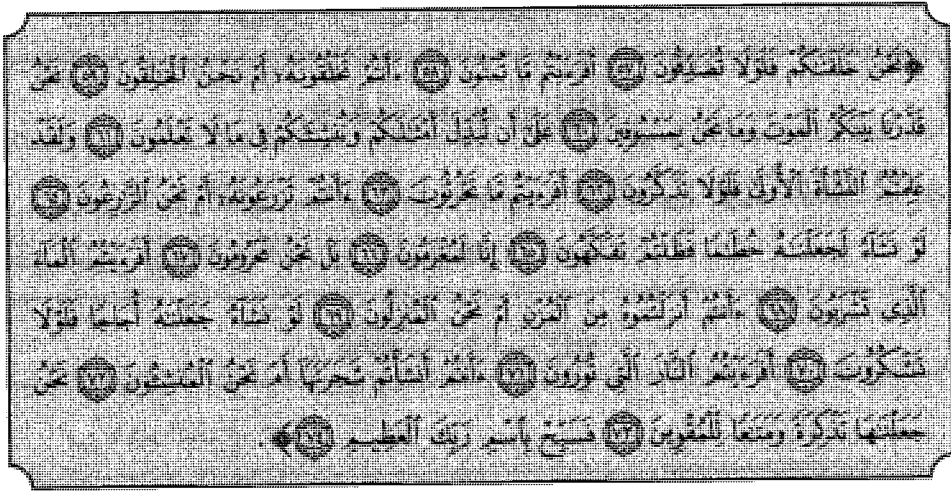 ﴿نَحْنُ خَلَقْنَٰكُمْ فَلَوْلَا تُصَدِّقُونَ ٥٧ أَفَرَءَيْتُم مَّا تُمْنُونَ ٥٨ ءَأَنتُمْ تَخْلُقُونَهُۥٓ أَمْ نَحْنُ ٱلْخَٰلِقُونَ ٥٩ نَحْنُ
قَدَّرْنَا بَيْنَكُمُ ٱلْمَوْتَ وَمَا نَحْنُ بِمَسْبُوقِينَ ٦٠ عَلَىٰٓ أَن نُّبَدِّلَ أَمْثَٰلَكُمْ وَنُنشِئَكُمْ فِى مَا لَا تَعْلَمُونَ ٦١ وَلَقَدْ
عَلِمْتُمُ ٱلنَّشْأَةَ ٱلْأُولَىٰ فَلَوْلَا تَذَكَّرُونَ ٦٢ أَفَرَءَيْتُم مَّا تَحْرُثُونَ ٦٣ ءَأَنتُمْ تَزْرَعُونَهُۥٓ أَمْ نَحْنُ ٱلزَّٰرِعُونَ ٦٤
لَوْ نَشَآءُ لَجَعَلْنَٰهُ حُطَٰمًا فَظَلْتُمْ تَفَكَّهُونَ ٦٥ إِنَّا لَمُغْرَمُونَ ٦٦ بَلْ نَحْنُ مَحْرُومُونَ ٦٧ أَفَرَءَيْتُمُ ٱلْمَآءَ
ٱلَّذِى تَشْرَبُونَ ٦٨ ءَأَنتُمْ أَنزَلْتُمُوهُ مِنَ ٱلْمُزْنِ أَمْ نَحْنُ ٱلْمُنزِلُونَ ٦٩ لَوْ نَشَآءُ جَعَلْنَٰهُ أُجَاجًا فَلَوْلَا
تَشْكُرُونَ ٧٠ أَفَرَءَيْتُمُ ٱلنَّارَ ٱلَّتِى تُورُونَ ٧١ ءَأَنتُمْ أَنشَأْتُمْ شَجَرَتَهَآ أَمْ نَحْنُ ٱلْمُنشِـُٔونَ ٧٢ نَحْنُ
جَعَلْنَٰهَا تَذْكِرَةً وَمَتَٰعًا لِّلْمُقْوِينَ ٧٣ فَسَبِّحْ بِٱسْمِ رَبِّكَ ٱلْعَظِيمِ ٧٤﴾.